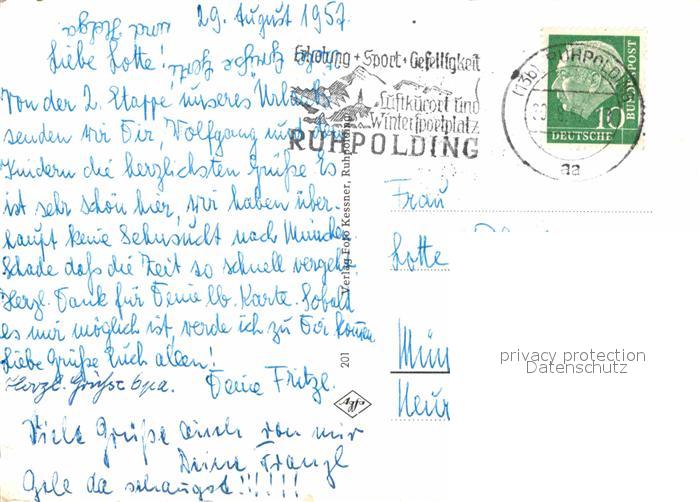 29. August 1957.
Liebe Lotte!
Von der 2. Etappe unseres Urlaubs
senden wir Dir, Wolfgang und den
Kindern die herzlichsten Grüße. Es
ist sehr schön hier, wir haben über-
haupt keine Sehnsucht nach München.
Schade daß die Zeit so schnell vergeht.
Herzl. Dank für Deine lb. Karte. Sobald
es mir möglich ist, werde ich zu Dir kommen
Liebe Grüße Euch allen!
Herzl. Grüße Opa. Deine Fritzl.
Viele Grüße auch von mir
Deine Franzl
Gele da schaugst!!!!!!
und Helga
Grüße
Erholung + Sport + Geselligkeit
Luftkurort und
Wintersportplatz
RUHPOLDING
(13b) RUHPOLDING
aa
10
DEUTSCHE
BUNDESPOST
Verlag Foto Kessner, Ruhpolding
201
Agfa
Frau
Lotte
Mün
Neur
privacy protection
Datenschutz